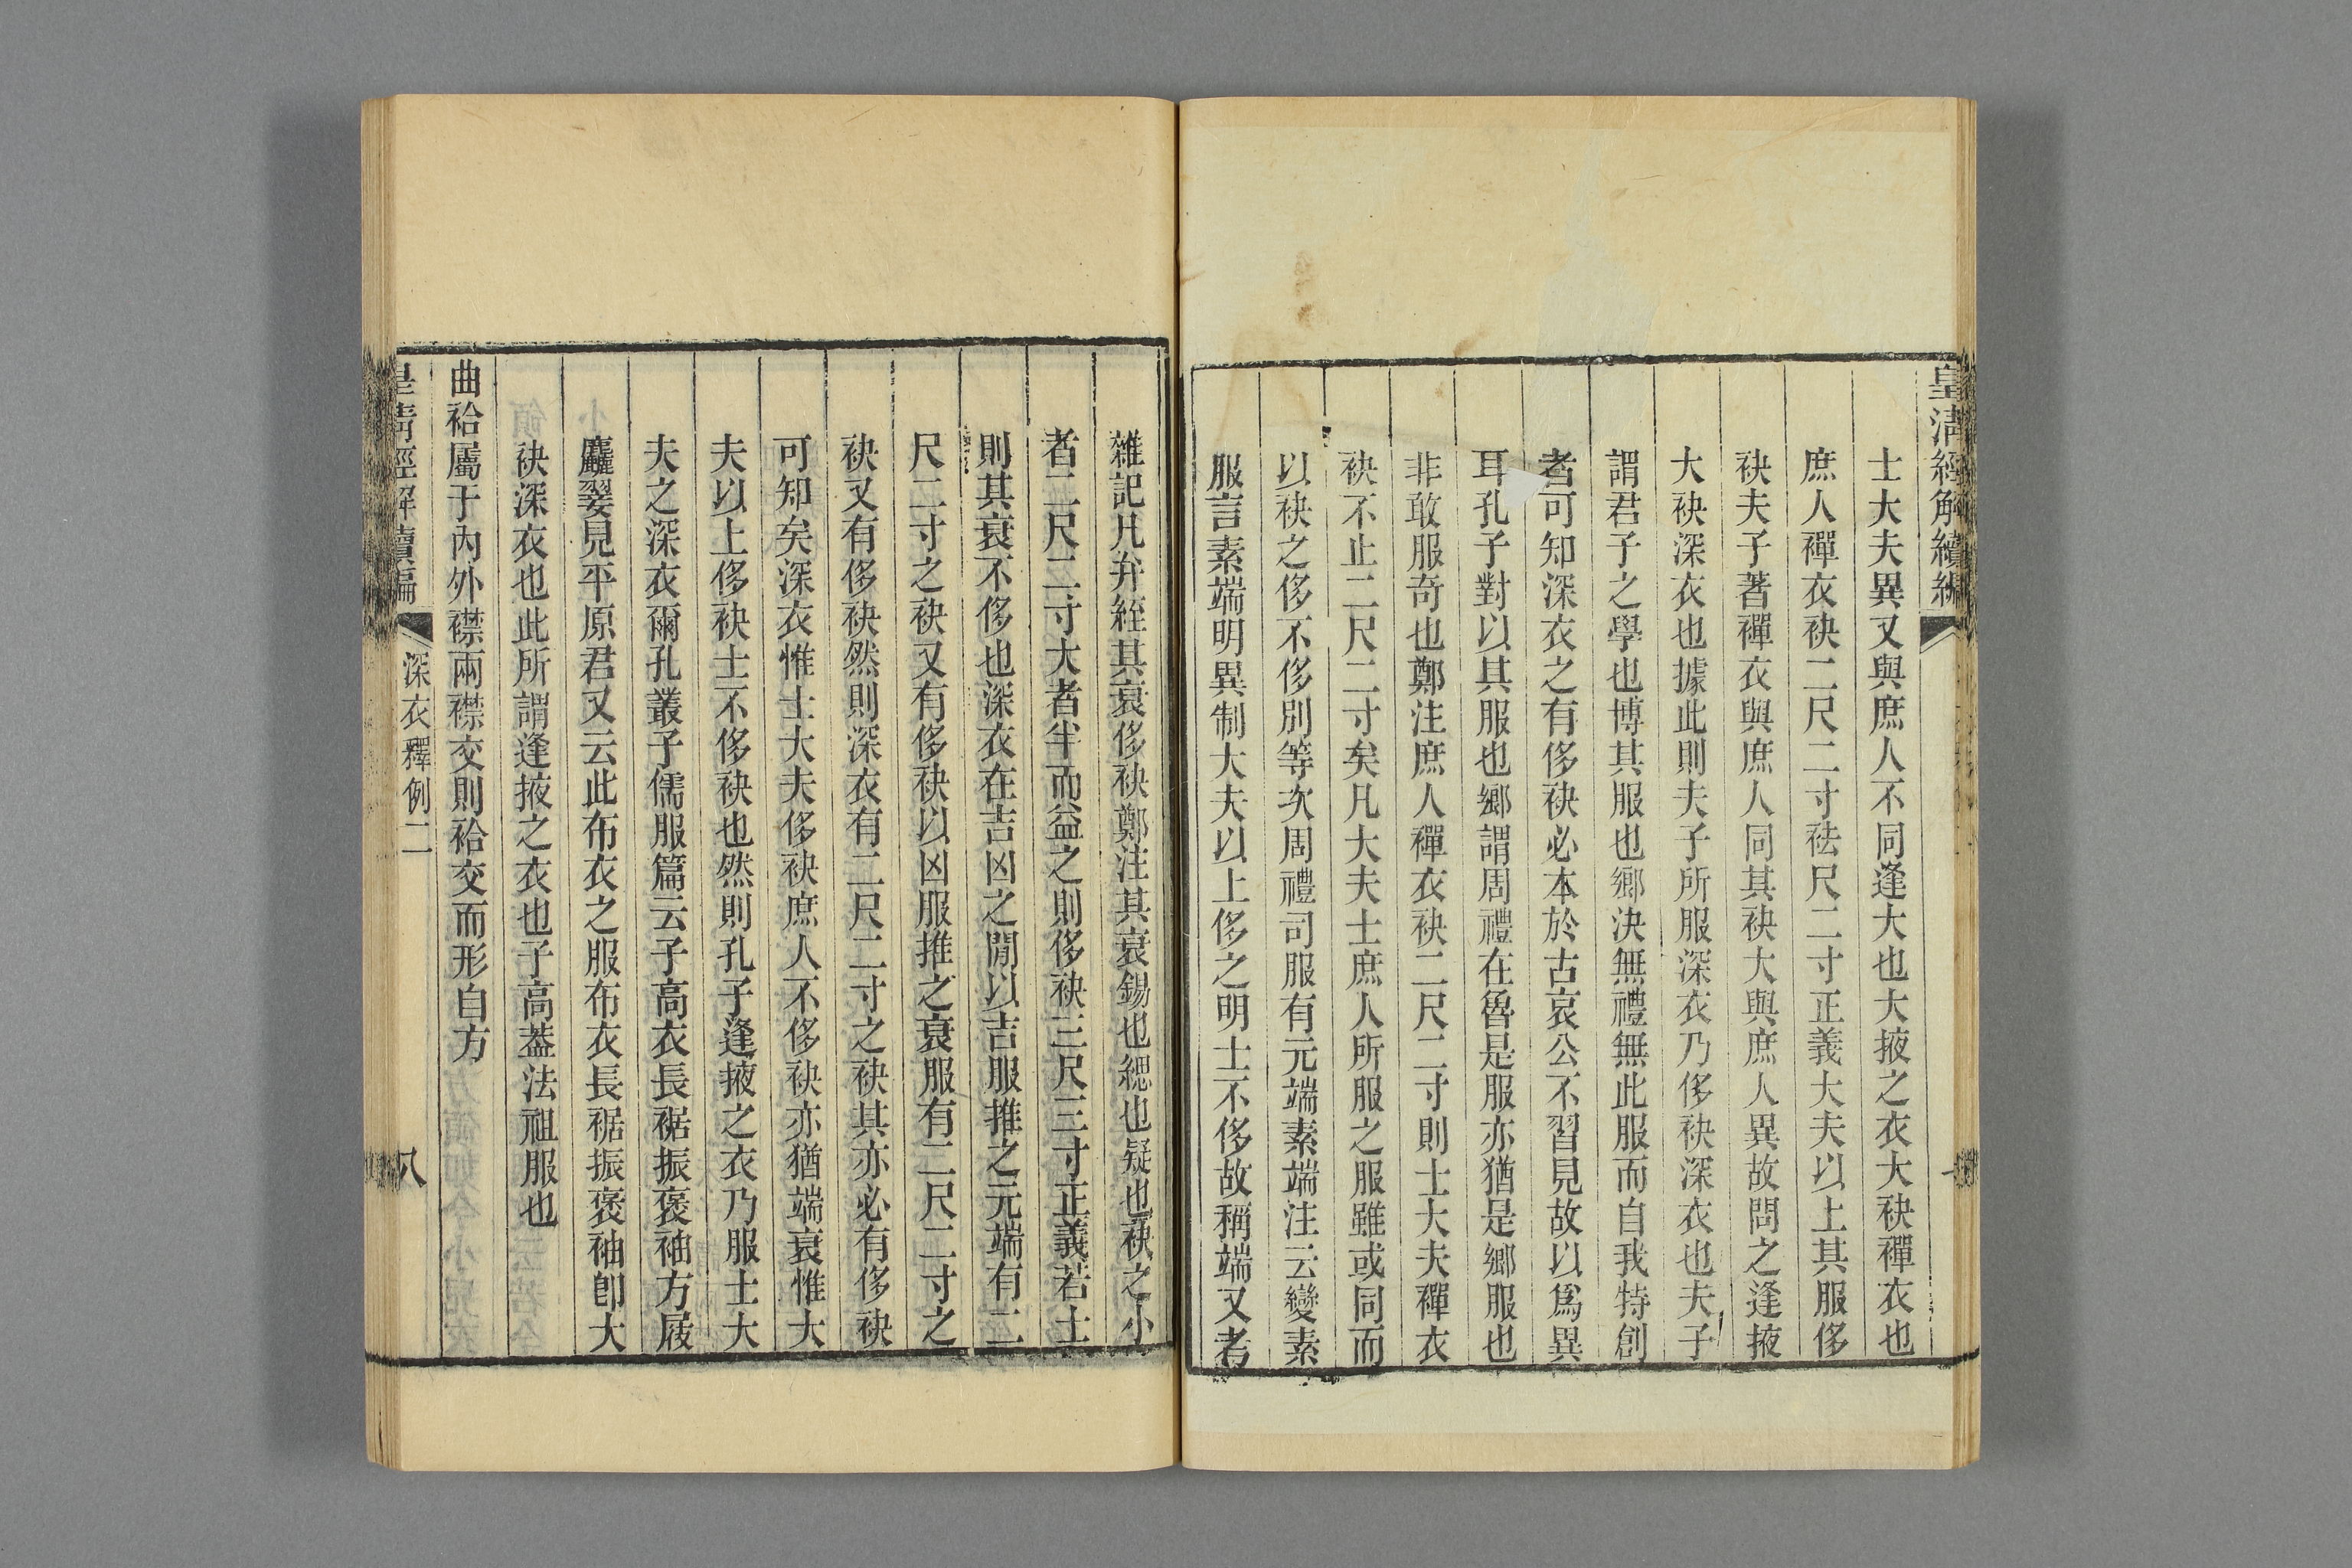 皇清經解續編
士大夫異又與庶人不同逢大也大掖之衣大袂襌衣也
庶人襌衣袂二尺二寸袪尺二寸正義大夫以上其服侈
袂夫子著襌衣與庶人同其袂大與庶人異故問之逢掖
大袂深衣也據此則夫子所服深衣乃侈袂深衣也夫子
謂君子之學也博其服也鄉決無禮無此服而自我特創
者可知深衣之有侈袂必本於古哀公不習見故以爲異
耳孔子對以其服也鄉謂周禮在魯是服亦猶是鄉服也
非敢服奇也鄭注庶人襌衣袂二尺二寸則士大夫襌衣
袂不止二尺二寸矣凡大夫士庶人所服之服雖或同而
以袂之侈不侈別等次周禮司服有元端素端注云變素
服言素端明異制大夫以上侈之明士不侈故稱端又考
雜記凡弁絰其衰侈袂鄭注其衰錫也緦也疑也袂之小
者二尺二寸大者半而益之則侈袂三尺三寸正義若士
則其衰不侈也深衣在吉凶之閒以吉服推之元端有二
尺二寸之袂又有侈袂以凶服推之衰服有二尺二寸之
袂又有侈袂然則深衣有二尺二寸之袂其亦必有侈袂
可知矣深衣惟士大夫侈袂庶人不侈袂亦猶端衰惟大
夫以上侈袂士不侈袂也然則孔子逢掖之衣乃服士大
夫之深衣爾孔叢子儒服篇云子高衣長裾振褒袖方屐
麤翣見平原君又云此布衣之服布衣長裾振褒袖卽大
袂深衣也此所謂逢掖之衣也子高葢法祖服也
曲袷屬于內外襟兩襟交則袷交而形自方
皇清經解續編
深衣釋例二
八